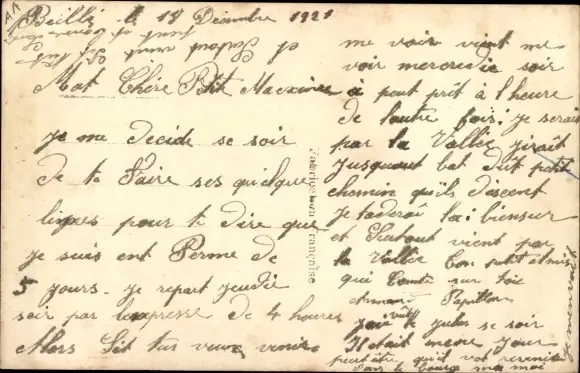 Beillé le 18 Décembre 1921
Mat Chère Petit Maxime
je me decide se soir
de te Faire ses quelque
lignes pour te dire que
je suis ent Perme de
5 jours. je repart jeudie
soir par lexpresse de 4 heures
Alors Sit tus veux venir
me voir vient me
voir mercredie soir
a peut prêt à l'heure
de lautre fois. je serais
par la Vallée jirait
jusquaut bat dût petit
chemin qu'ils descent
je taderaî toi biensur
et Surtout vient par
la Vallée Ton petit amis
qui Comte sur toie
Armand Papillon
jais vut le jules se soir
Il etait encore jour
peut être qu'il vat revenir
dans le bourg ma moi
je men vait
et Surtout
Fabrication Française